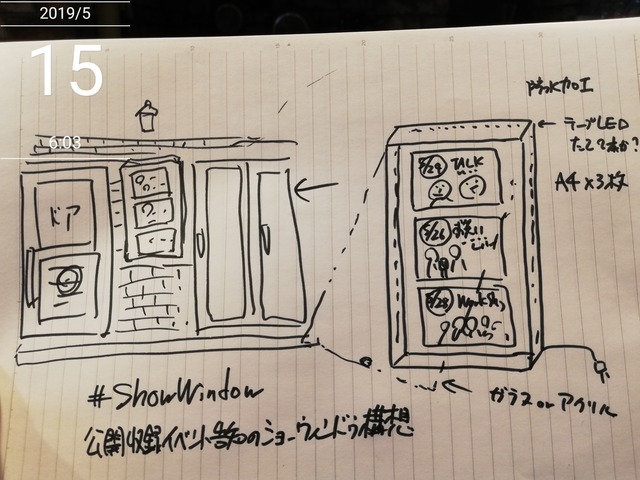 2019/5
15
6:03
防水加工
テープLED
たて2本か?
A4×3枚
ドア
5/24 TALK
5/26 お笑い
5/28
#ShowWindow
公開収録イベント告知のショーウィンドウ構想
ガラス or アクリル